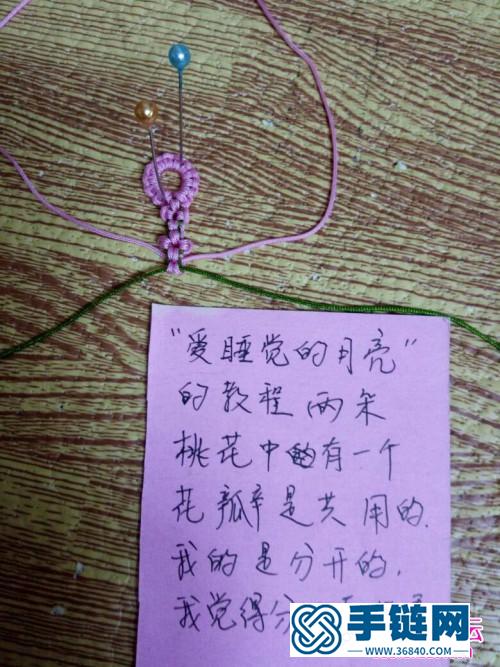 "爱睡觉的月亮"
的教程两朵
桃花中的有一个
花瓣是共用的.
我的是分开的.
我觉得分
手链网
www.36840.com